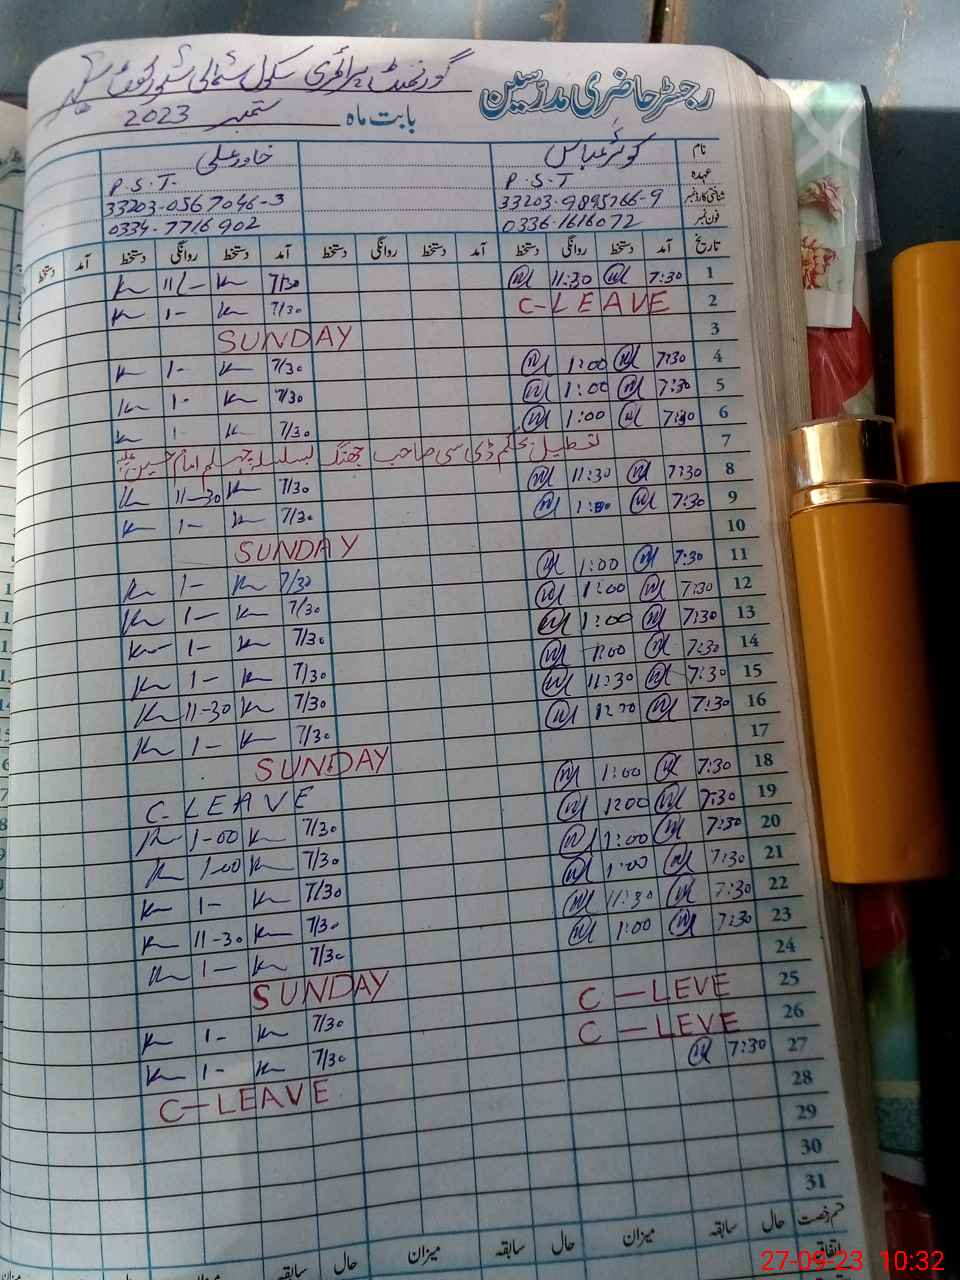 رجسٹر حاضری مدرسین گورنمنٹ پرائمری سکول شمالی شورکوٹ سٹی
بابت ماہ ستمبر 2023
نام کوثر عباس خاور علی
عہدہ P.S.T P.S.T.
شناختی کارڈ نمبر 33203-9895766-9 33203-0567046-3
فون نمبر 0336-1616072 0334-7716902
تاریخ آمد دستخط روانگی دستخط آمد دستخط روانگی دستخط آمد دستخط روانگی دستخط آمد دستخط
1 7:30 11:30 7/30 K 11/- K
2 C-LEAVE 7/30 K 1- K
3 SUNDAY
4 7:30 1:00 7/30 K 1- K
5 7:30 1:00 7/30 K 1- K
6 7:30 1:00 7/30 K 1- K
7 تعطیل بحکم ڈی سی صاحب جھنگ بسلسلہ چہلم امام حسین
8 7:30 11:30 7/30 K 11-30 K
9 7:30 1:00 7/30 K 1- K
10 SUNDAY
11 7:30 1:00 7/30 K 1- K
12 7:30 1:00 7/30 K 1- K
13 7:30 1:00 7/30 K 1- K
14 7:30 1:00 7/30 K 1- K
15 7:30 11:30 7/30 K 11-30 K
16 7:30 7/30 K 1- K
17 SUNDAY
18 7:30 1:00 C.LEAVE
19 7:30 1:00 7/30 K 1-00 K
20 7:30 1:00 7/30 K 1-00 K
21 7:30 1:00 7/30 K 1- K
22 7:30 11:30 7/30 K 11-30 K
23 7:30 1:00 7/30 K 1- K
24 SUNDAY
25 C-LEVE 7/30 K 1- K
26 C-LEVE 7/30 K 1- K
27 7:30 C-LEAVE
28
29
30
31
قسم رخصت حال سابقہ میزان حال سابقہ میزان حال سابقہ میزان
اتفاقیہ
27-09-23 10:32